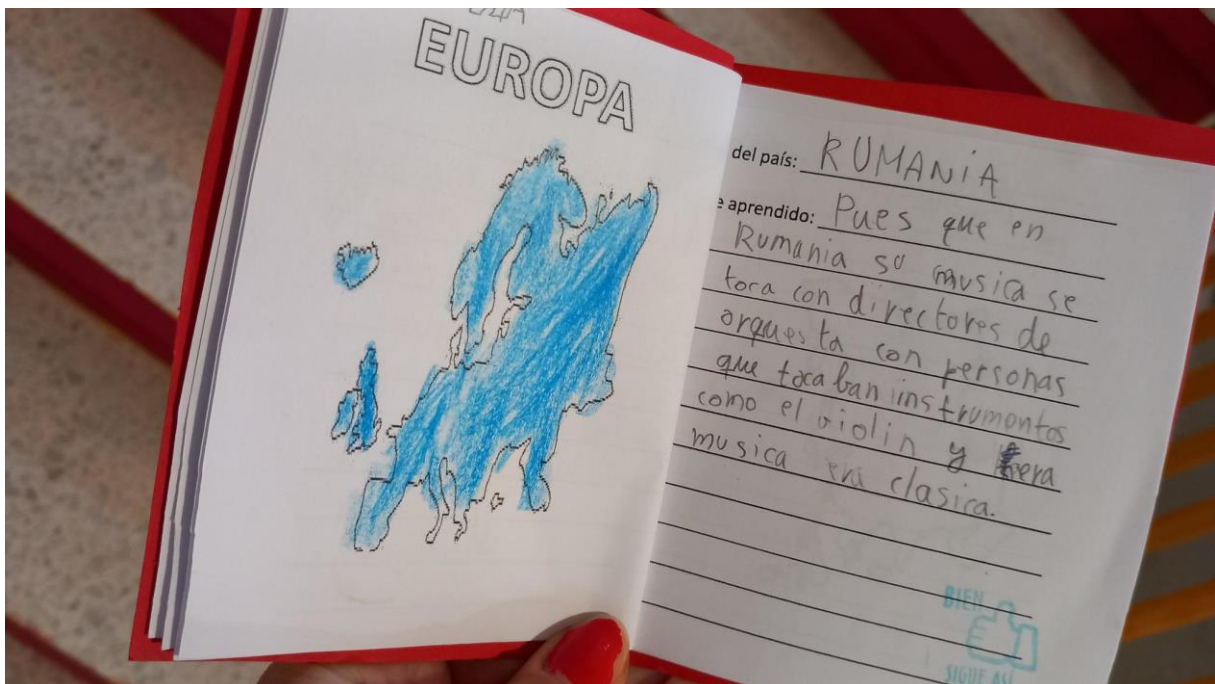 EUROPA
del país: RUMANIA
e aprendido: Pues que en
Rumania su musica se
toca con directores de
orquesta con personas
que tocaban instrumentos
como el violin y era
musica clasica.
BIEN
SIGUE ASÍ